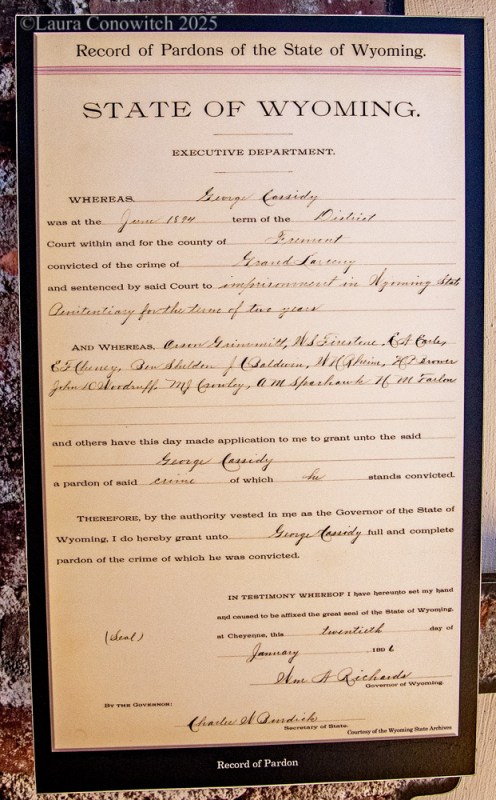 ©Laura Conowitch 2025
Record of Pardons of the State of Wyoming.
STATE OF WYOMING.
EXECUTIVE DEPARTMENT.
WHEREAS, George Cassidy
was at the June 1894 term of the District
Court within and for the county of Fremont
convicted of the crime of Grand Larceny
and sentenced by said Court to imprisonment in Wyoming State
Penitentiary for the term of two years
AND WHEREAS, W S Firestone,
E F Cheney, Don Sheldon J C Baldwin,
John D Woodruff, M J Crowley, A M Sparhawk
and others have this day made application to me to grant unto the said
George Cassidy
a pardon of said crime of which he stands convicted.
THEREFORE, by the authority vested in me as the Governor of the State of
Wyoming, I do hereby grant unto George Cassidy full and complete
pardon of the crime of which he was convicted.
IN TESTIMONY WHEREOF I have hereunto set my hand
and caused to be affixed the great seal of the State of Wyoming,
(Seal) at Cheyenne, this twentieth day of
January 1896
Wm A Richards
Governor of Wyoming.
BY THE GOVERNOR:
Charles W Burdick
Secretary of State.
Courtesy of the Wyoming State Archives
Record of Pardon